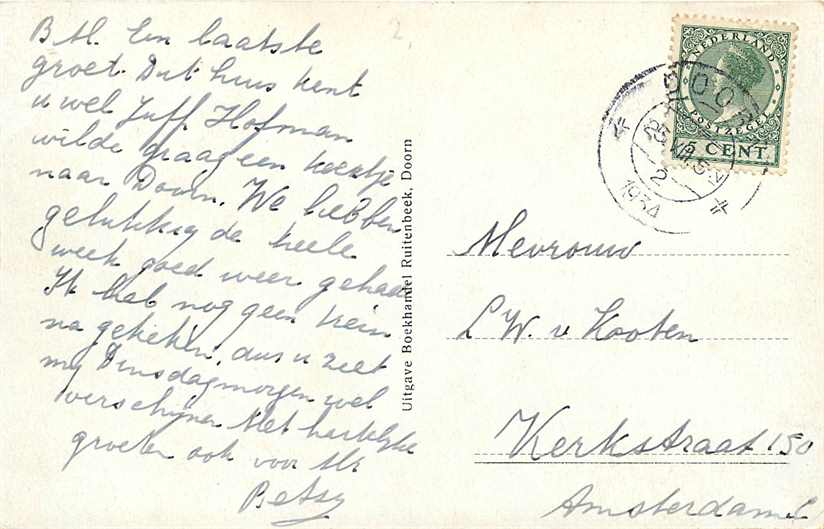 B M. Een laatste
groet. Dit huis kent
u wel Juff. Hofman
wilde graag een keertje
naar Doorn. We hebben
gelukkig de heele
week goed weer gehad
Ik heb nog geen trein
na gekeken, dus u ziet
my Dinsdagmorgen wel
verschijnen Met hartelijke
groeten ook voor Mr
Betsy
Uitgave Boekhandel Ruitenbeek, Doorn
NEDERLAND
POSTZEGEL
5 CENT
DOORN
2
1934
Mevrouw
L W. v Kooten
Kerkstraat 150
Amsterdam C